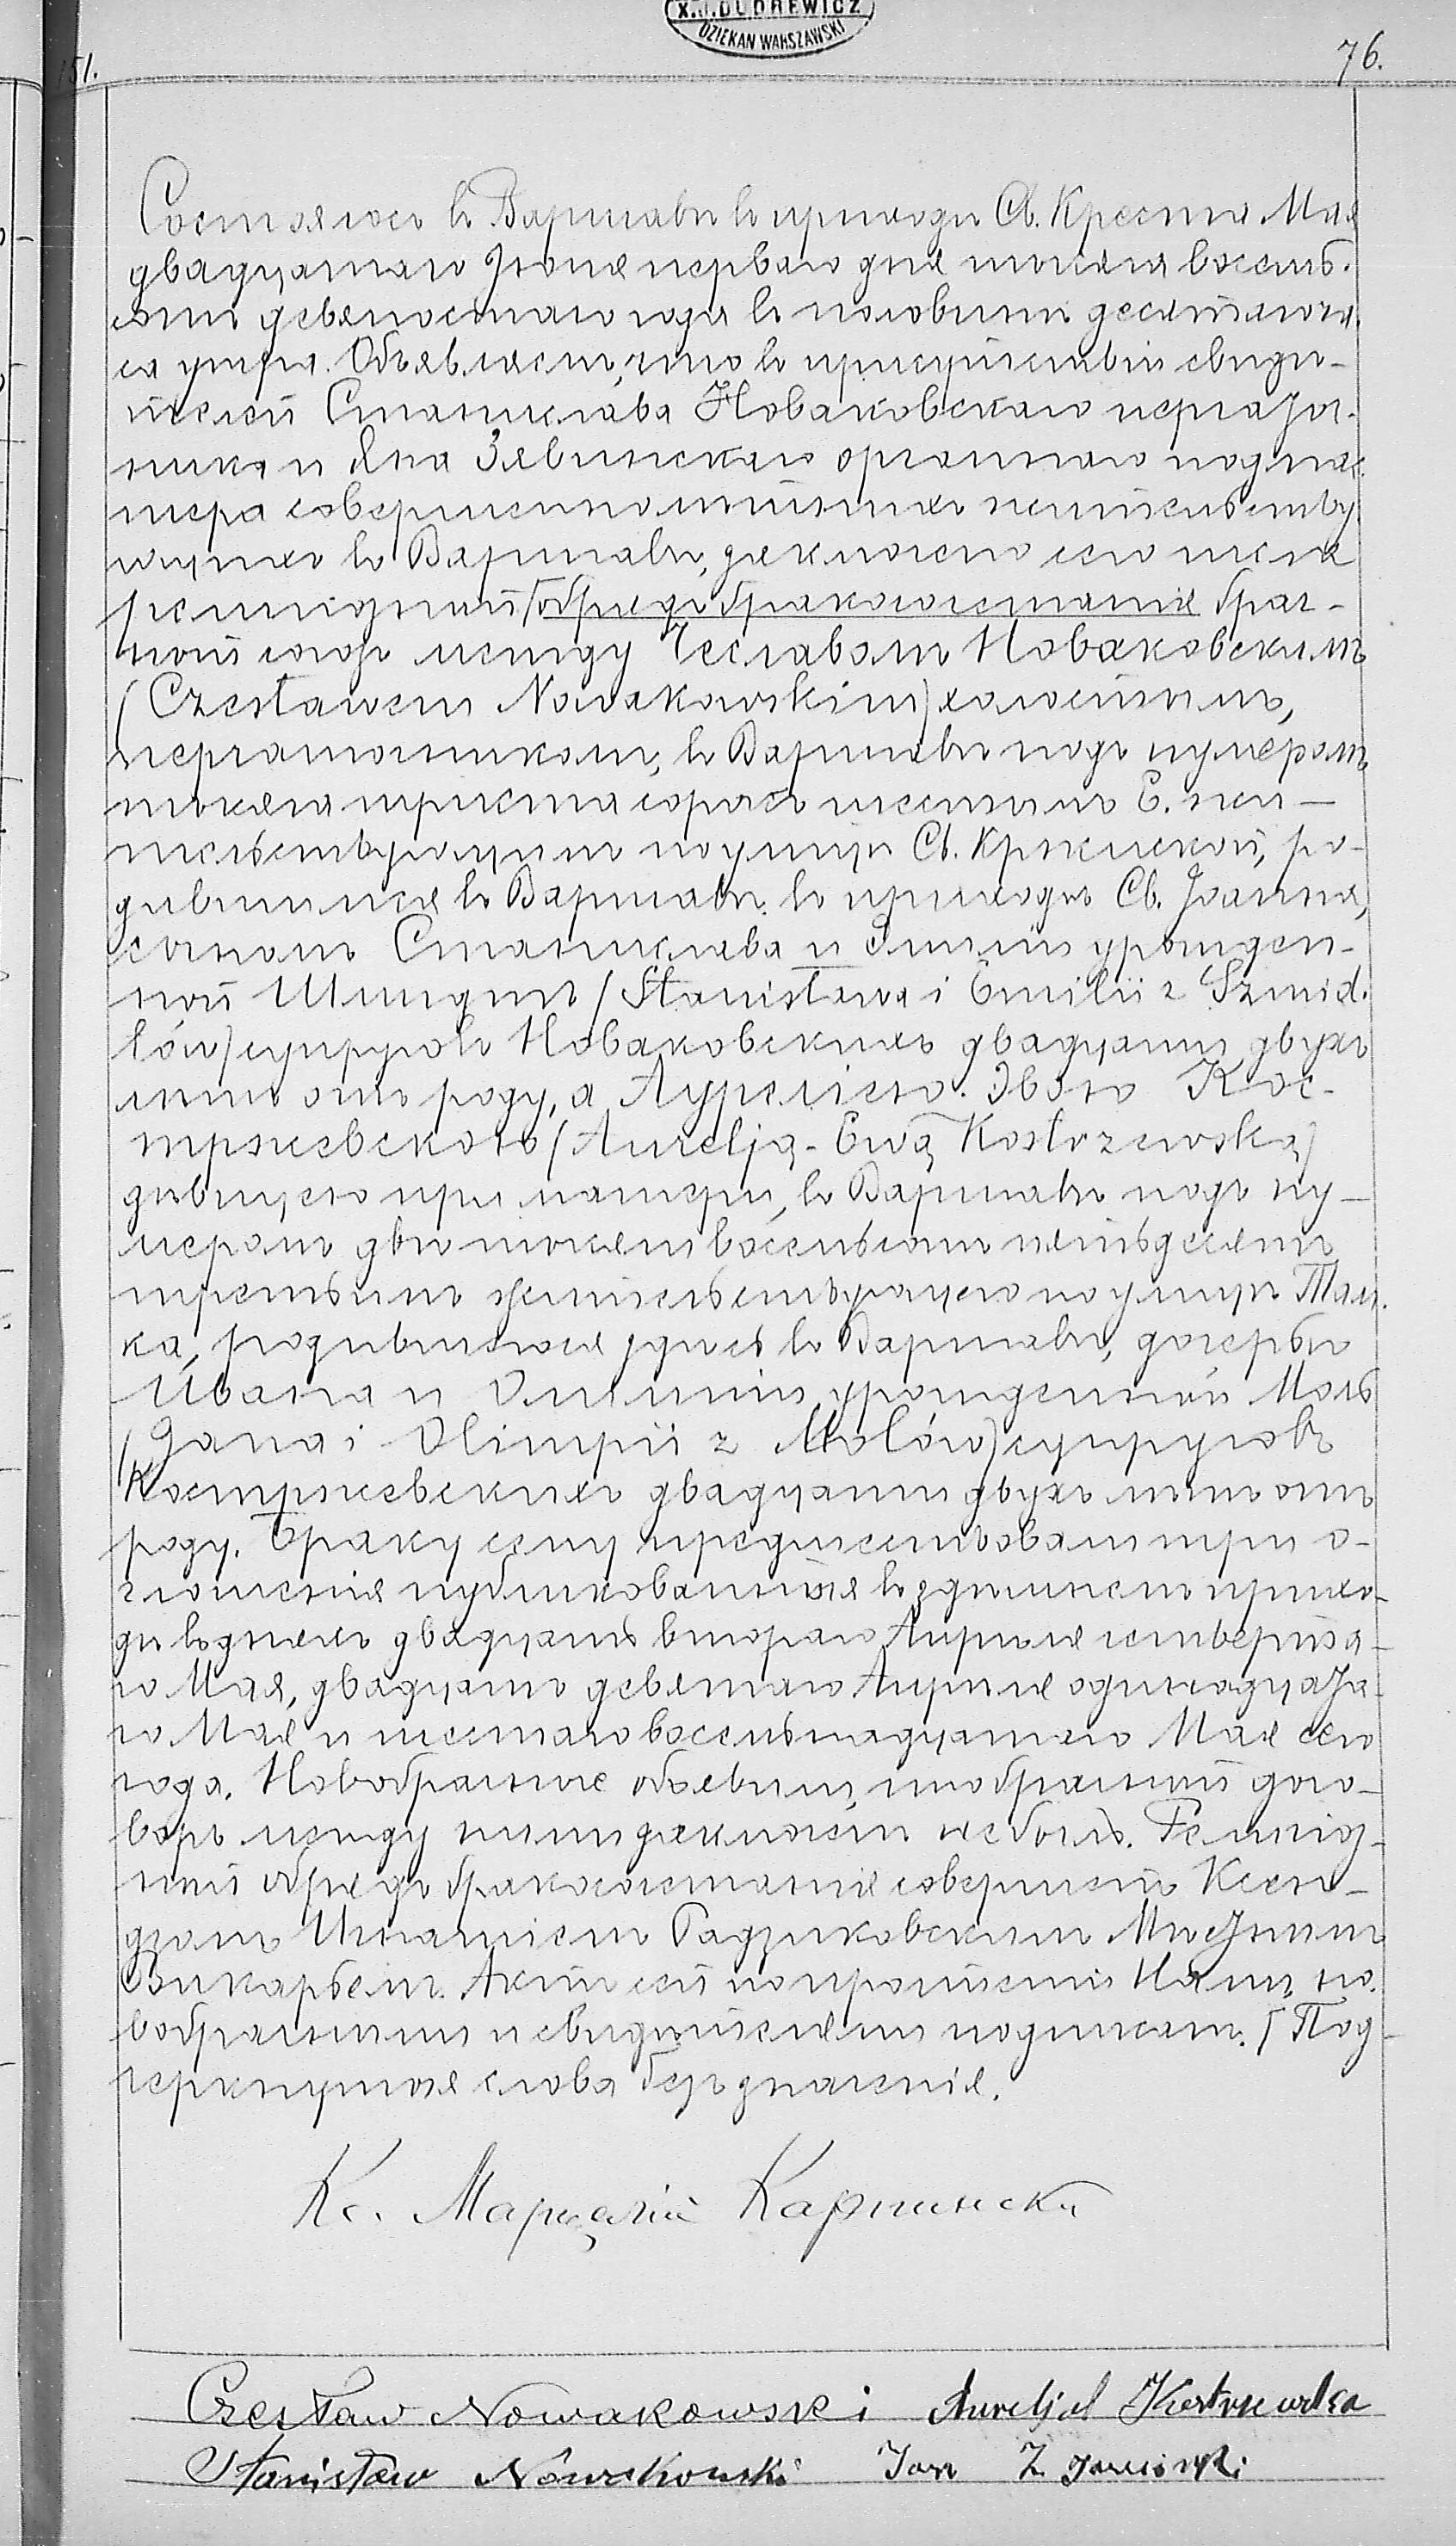 X. J. DUDREWICZ
DZIEKAN WARSZAWSKI
151.
76.
Состоялось въ Варшавѣ въ приходѣ Св. Креста Мая
двадцатаго Іюня перваго дня тысяча восемь-
сотъ девяностаго года въ половинѣ десятаго ча-
са утра. Объявляемъ, что въ присутствіи свидѣ-
телей Станислава Новаковскаго перчаточ-
ника и Яна органнаго подмас-
тера совершеннолѣтнихъ жительству-
ющихъ въ Варшавѣ, заключенъ сего числа
религіозный обрядъ бракосочетанія брач-
ный союзъ между Чеславомъ Новаковскимъ
(Czesławem Nowakowskim) холостымъ,
перчаточникомъ, въ Варшавѣ подъ нумеромъ
тысяча триста сорокъ шестымъ Е. жи-
тельствующимъ по улицѣ Св. Кржиской, ро-
дившимся въ Варшавѣ въ приходѣ Св. Іоанна,
сыномъ Станислава и Эмиліи урожден-
ной Шмидтъ (Stanisława i Emilii z Szmid-
tów) супруговъ Новаковскихъ двадцати двухъ
лѣтъ отъ роду, а Аурелією-Эвою Кос-
тржевскою (Aurelją-Ewą Kostrzewską)
дѣвицею при матери, въ Варшавѣ подъ ну-
меромъ двѣ тысячи восемьсотъ пятьдесятъ
третьимъ жительствующею по улицѣ Там-
ка, родившеюся здѣсь въ Варшавѣ, дочерью
Ивана и Олимпіи урожденной Моль
(Jana i Olimpii z Molów) супруговъ
Костржевскихъ двадцати двухъ лѣтъ отъ
роду. Браку сему предшествовали три о-
глашенія публикованныя въ здѣшнемъ прихо-
дѣ въ дняхъ двадцать втораго Апрѣля четверта-
го Мая, двадцать девятаго Апрѣля одинадцата-
го Мая и шестаго восемьнадцатаго Мая сего
года. Новобрачные объявили, что брачный дого-
воръ между ними заключенъ не былъ. Религіоз-
ный обрядъ бракосочетанія совершенъ Ксен-
дзомъ Игнатіемъ Мѣстнымъ
Викарьемъ. Актъ сей по прочтеніи Нами, но-
вобрачными и свидѣтелями подписанъ. / Под-
черкнутыя слова безъ значенія.
Кс. Марцелій Карпински
Czesław Nowakowski Aurelja Kostrzewska
Stanisław Nowakowski Jan